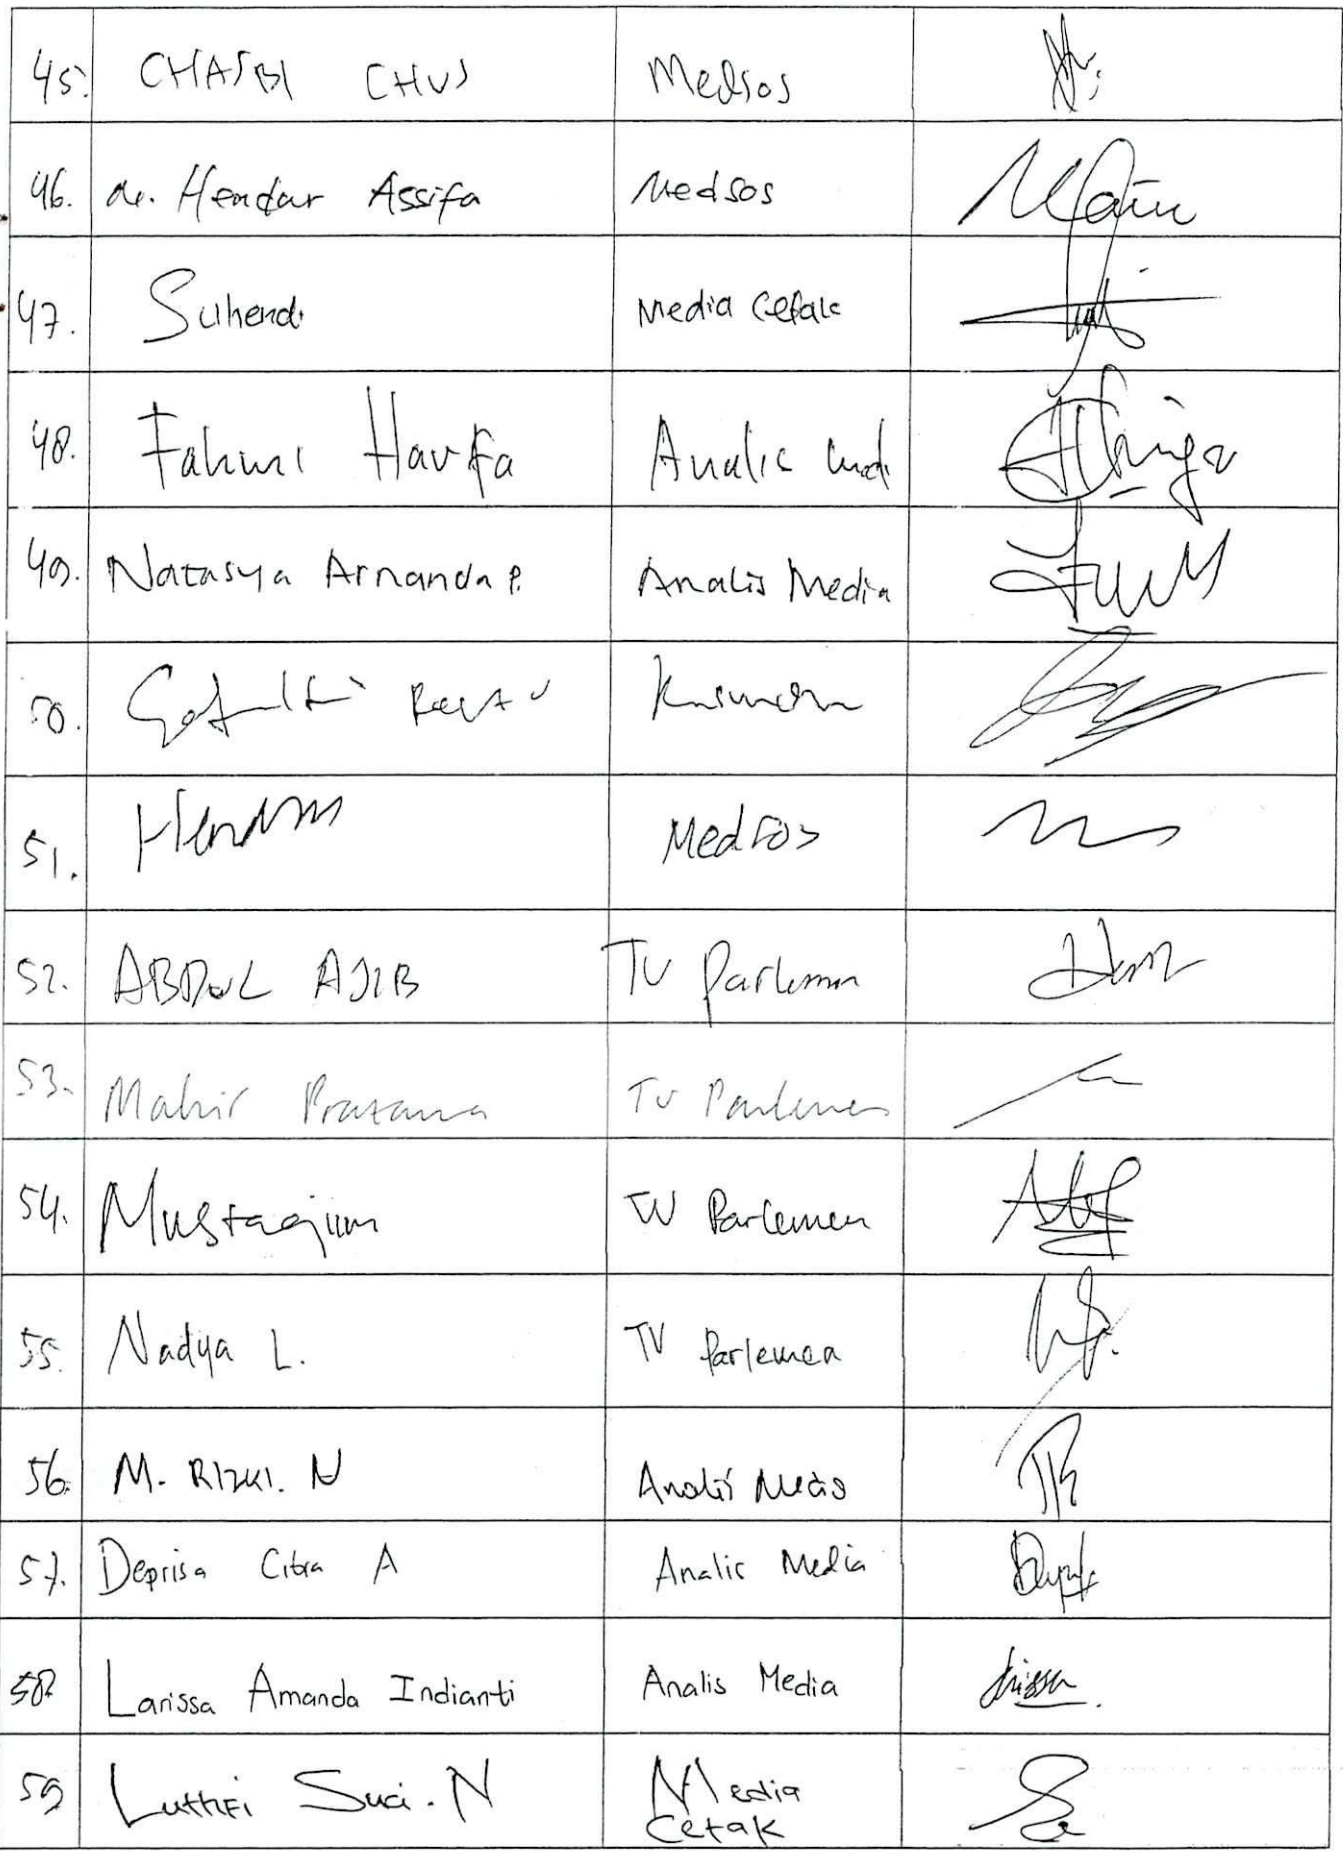 45. CHASBI CHUS Medsos
46. M. Hendar Assifa Medsos
47. Suhendi Media Cetak
48. Fahmi Analis
49. Natasya Arnanda P. Analis Media
50.
51. Medsos
52. ABDUL AJIB TV Parlemen
53. Mahir Pratama TV Parlemen
54. Mustaqim TV Parlemen
55. Nadya L. TV Parlemen
56. M. RIZKI. N Analis Media
57. Deprisa Citra A Analis Media
58 Larissa Amanda Indianti Analis Media
59 Luthfi Suci. N Media
Cetak